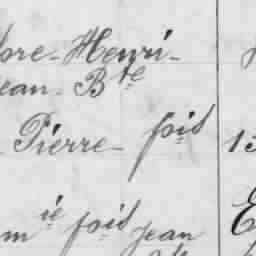 ore - Henri -
ean - Bte
Pierre - foid 15
m ie foid Jean